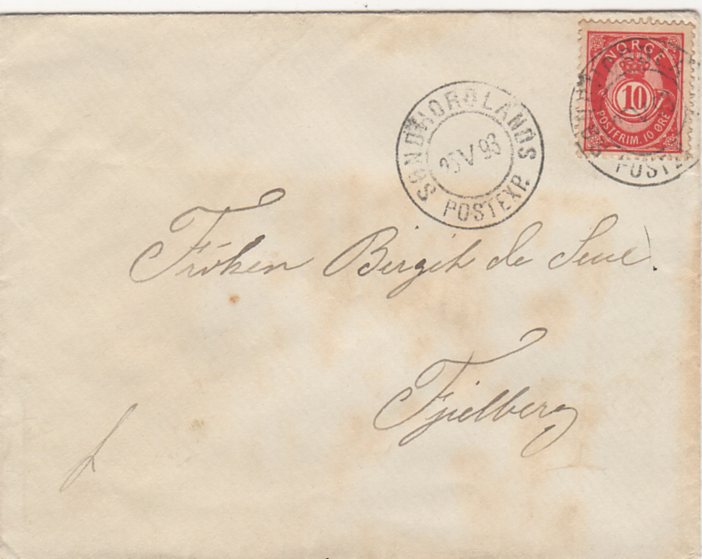 NORGE
10
POSTFRIM. 10 ØRE
POSTE
SÖNDHORDLANDS
25 V 93
POSTEXP.
Fröken Birgit de Seue.
Fjelberg